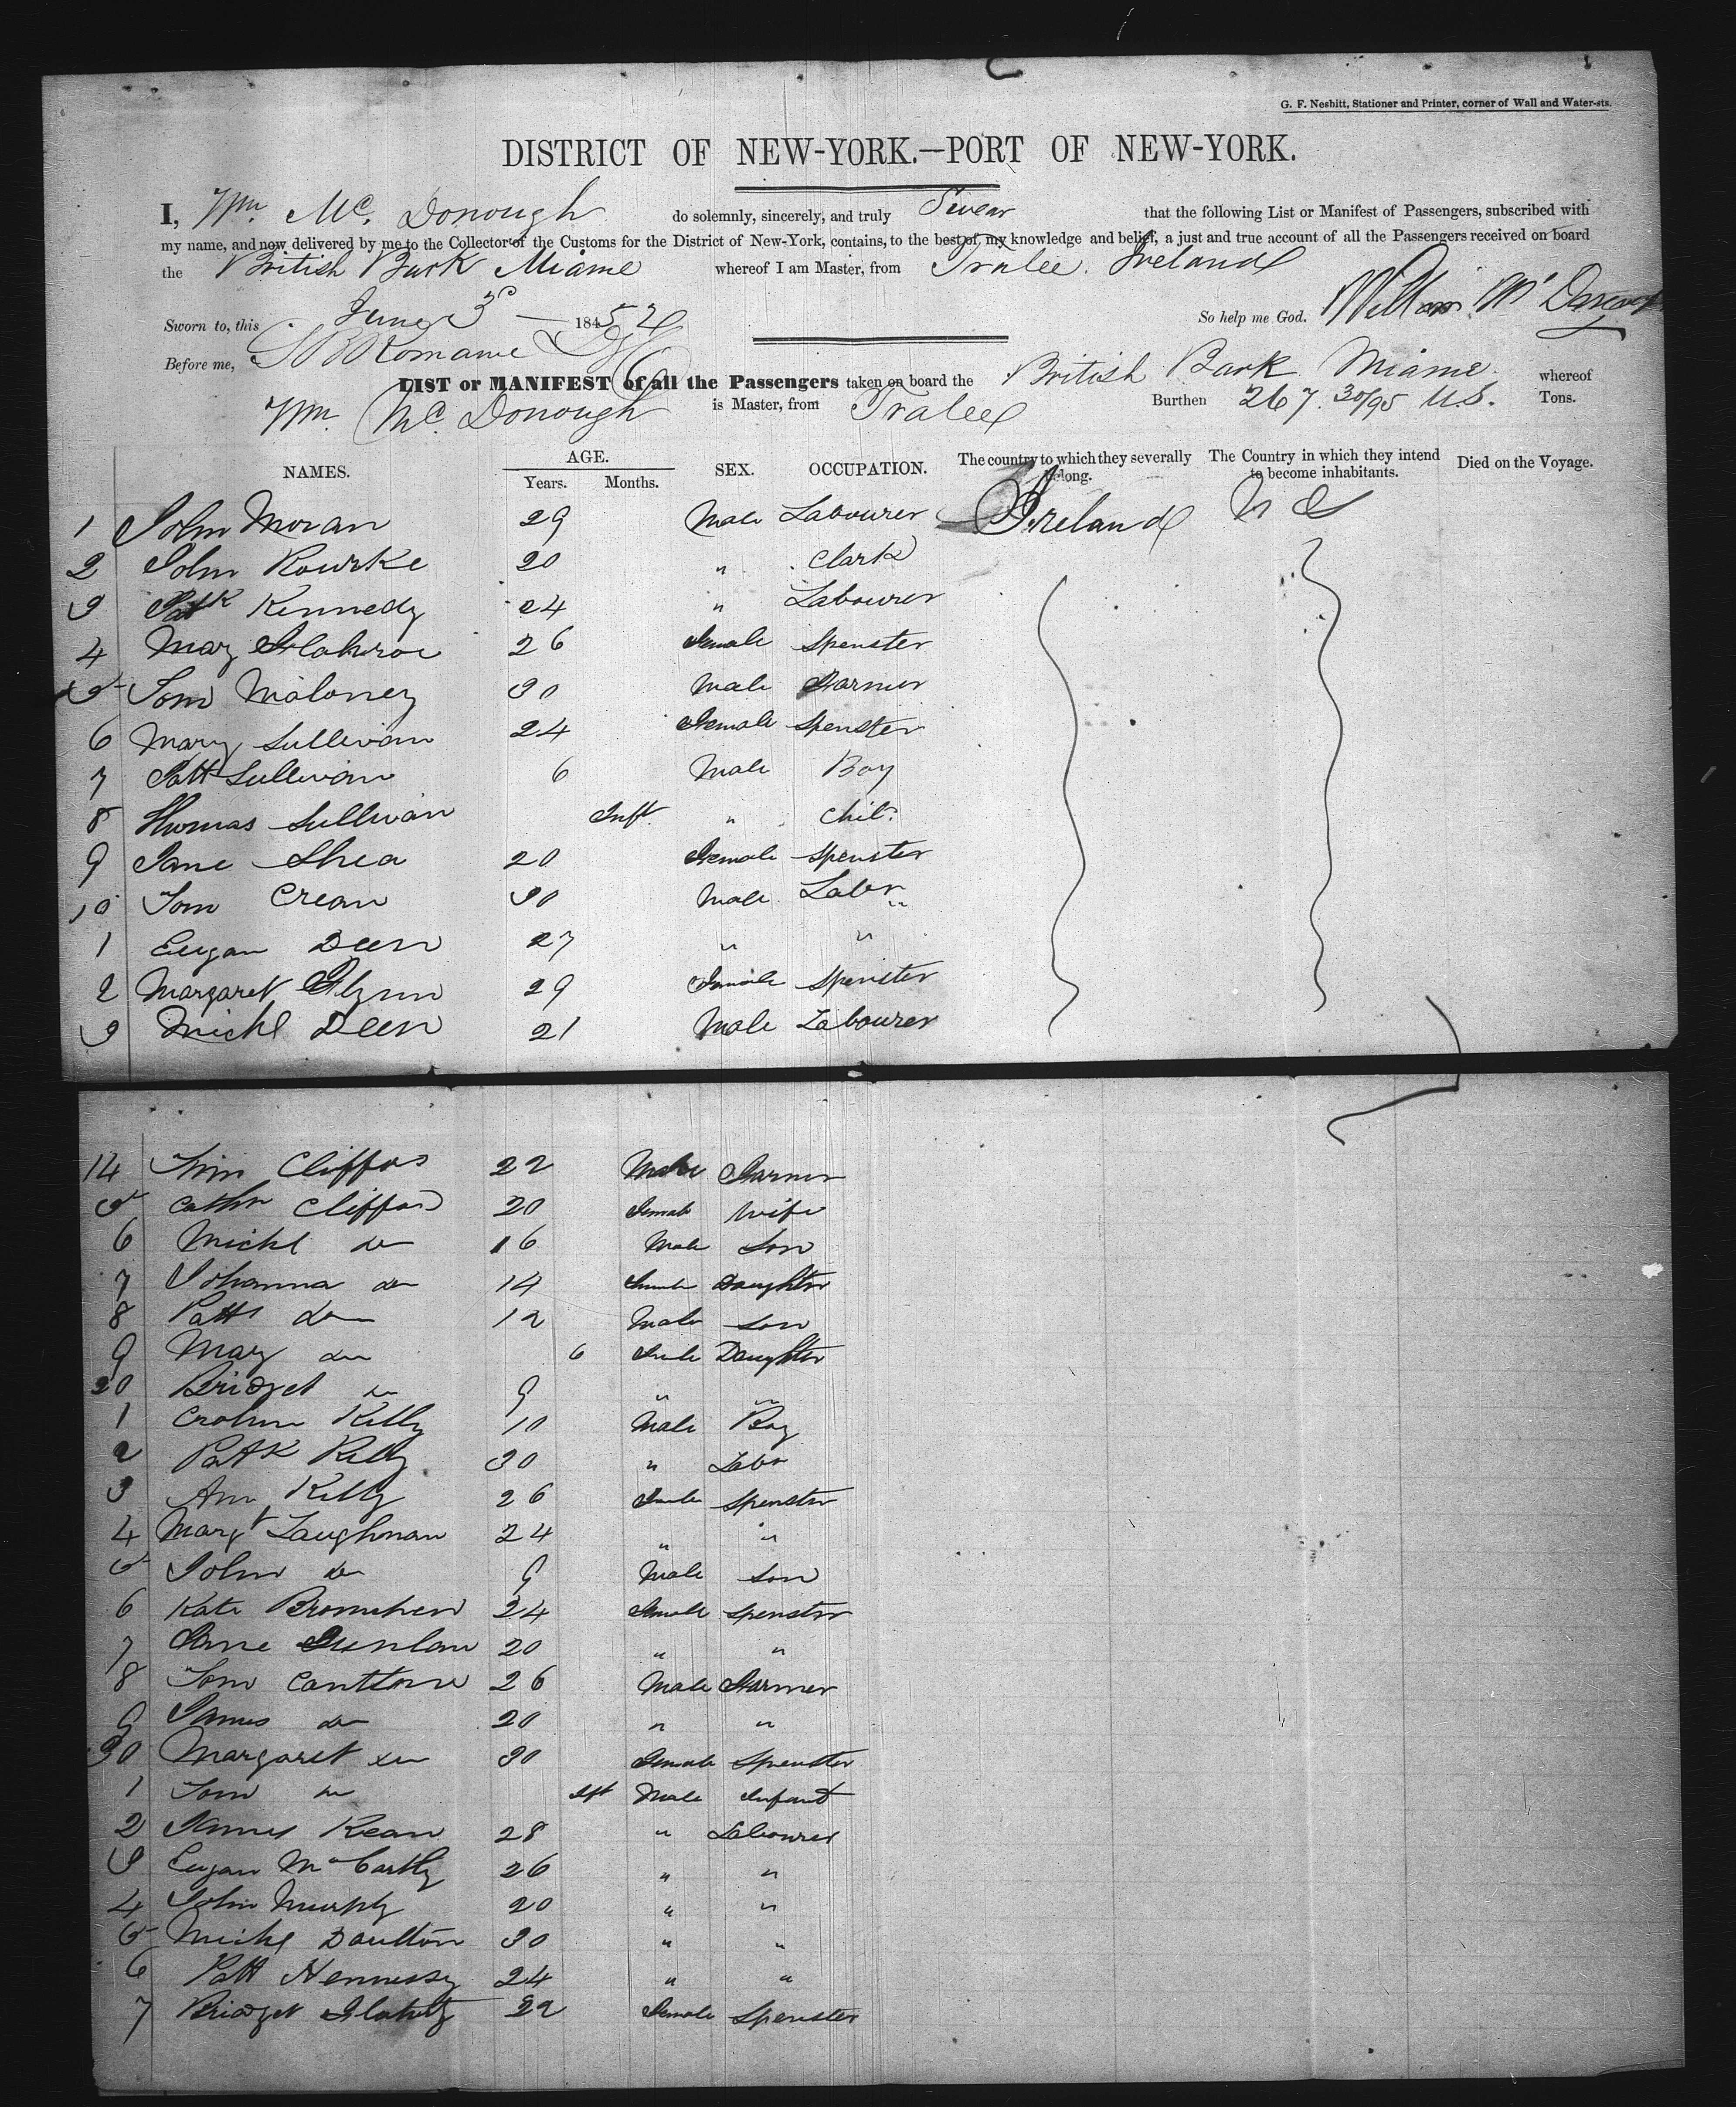 G. F. Nesbitt, Stationer and Printer, corner of Wall and Water-sts.
DISTRICT OF NEW-YORK.—PORT OF NEW-YORK.
I, Wm. Mc. Donough do solemnly, sincerely, and truly Swear that the following List or Manifest of Passengers, subscribed with
my name, and now delivered by me to the Collector of the Customs for the District of New-York, contains, to the best of my knowledge and belief, a just and true account of all the Passengers received on board
the British Bark Miame whereof I am Master, from Tralee. Ireland
Sworn to, this June 3d 184 52 So help me God. William Mc Donough
Before me, Romaine
LIST or MANIFEST of all the Passengers taken on board the British Bark Miame whereof
Wm. Mc. Donough is Master, from Tralee Burthen 267. 30/95 U.S. Tons.
NAMES. AGE. Years. Months. SEX. OCCUPATION. The country to which they severally belong. The Country in which they intend to become inhabitants. Died on the Voyage.
1 John Moran 29 Male Labourer Ireland U S
2 John Rourke 20 " Clark
3 Patk Kennedy 24 " Labourer
4 Mary 26 Female Spenster
5 Tom Maloney 30 Male Farmer
6 Mary Sullivan 24 Female Spenster
7 Patt Sullivan 6 Male Boy
8 Thomas Sullivan Inft. " Chil.
9 Jane Shea 20 Female Spenster
10 Tom Crean 30 Male Labr
1 Eugan Deen 27 " "
2 Margaret Flynn 29 Female Spenster
3 Michl Deen 21 Male Labourer
14 Tim Cliffod 22 Male Farmer
5 Cathn Cliffod 20 Female Wife
6 Michl do 16 Male Son
7 Johanna do 14 Female Daughter
8 Patt do 12 Male Son
9 Mary do 6 Female Daughter
20 Bridget do 9 " "
1 Kelly 10 Male Boy
2 Patk Kelly 30 " Labr
3 Ann Kelly 26 Female Spenster
4 Margt Laughnan 24 " "
5 John do 9 Male Son
6 Kate 24 Female Spenster
7 Jane 20 " "
8 Tom 26 Male Farmer
9 James do 20 " "
30 Margaret do 30 Female Spenster
1 Tom do Ift Male Infant
2 James Kean 28 " Labourer
3 Eugan McCarthy 26 " "
4 John Murphy 20 " "
5 Michl Daulton 30 " "
6 Patt Hennessy 24 " "
7 Bridget 22 Female Spenster